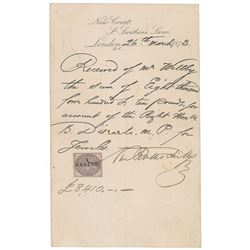 New Court,
St. Swithin's Lane,
London, 26th March 1873
E.C.
Received of Mr Willeby
the Sum of Eight thousand
four hundred & ten pounds for
account of the Right Honble
B. Disraeli M.P. for
Jewels.
£8,410.-.-